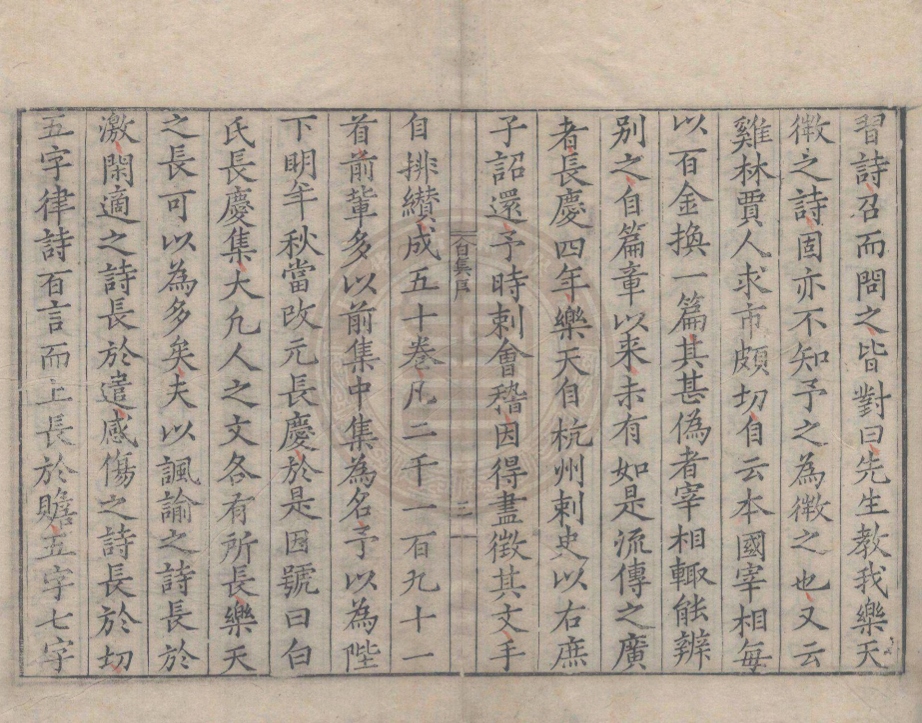 習詩召而問之皆對曰先生教我樂天
微之詩固亦不知予之為微之也又云
雞林賈人求市頗切自云本國宰相每
以百金換一篇其甚偽者宰相輙能辨
别之自篇章以来未有如是流傳之廣
者長慶四年樂天自杭州刺史以右庶
子詔還予時刺會稽因得盡徵其文手
白集序
三
自排纉成五十卷凡二千一百九十一
首前軰多以前集中集為名予以為陛
下明年秋當改元長慶於是因號曰白
氏長慶集大凢人之文各有所長樂天
之長可以為多矣夫以諷諭之詩長於
激閑適之詩長於遣感傷之詩長於切
五字律詩百言而上長於贍五字七字